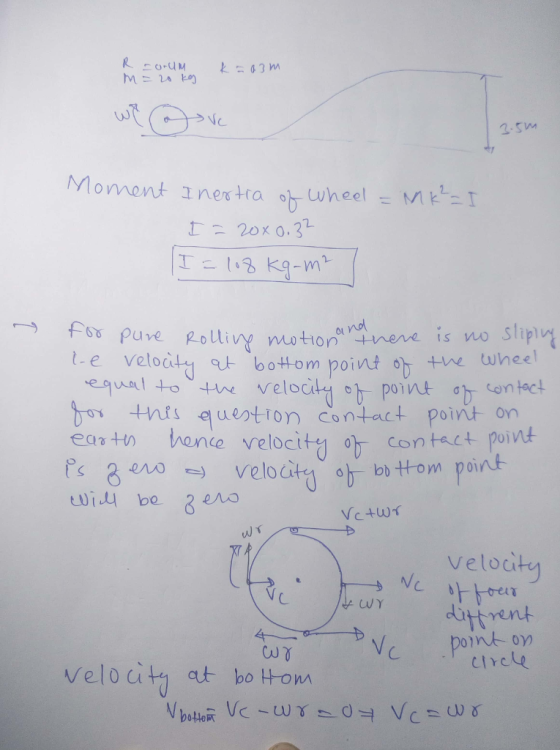 R = 0.4M K = 0.3 m
M = 20 kg
ω Vc
3.5m
Moment Inertia of wheel = Mk² = I
I = 20×0.3²
I = 1.8 kg-m²
→ For pure Rolling motion and there is no sliping
i.e velocity at bottom point of the wheel
equal to the velocity of point of contact
for this question contact point on
earth hence velocity of contact point
is zero ⇒ velocity of bottom point
will be zero
Vc+ωr
ωr
Vc
Vc
ωr
ωr
Vc
velocity
of four
diffrent
point on
circle
velocity at bottom
Vbottom = Vc - ωr = 0 ⇒ Vc = ωr